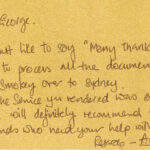 George.
like to say "Many Thanks
to process all the document
Smokey over to Sydney.
the service you rendered was
will definitely recommend
who need your help with